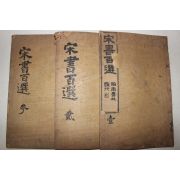 宋書百選
壹
宋書百選
貳
宋書百選
參